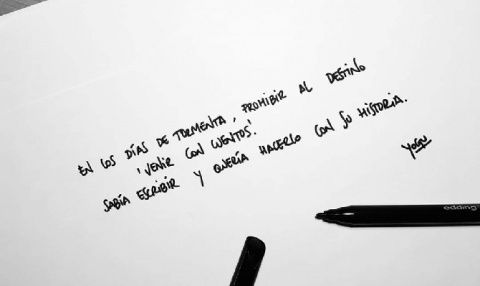 EN LOS DÍAS DE TORMENTA, PROHIBIR AL DESTINO
'VENIR CON CUENTOS'.
SABÍA ESCRIBIR Y QUERÍA HACERLO CON SU HISTORIA.
YOGU
edding